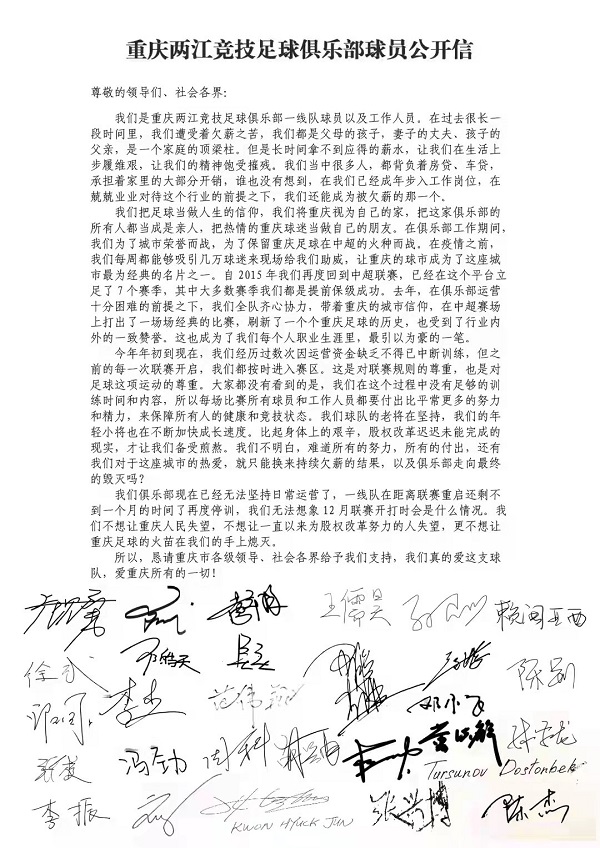 重庆两江竞技足球俱乐部球员公开信
尊敬的领导们、社会各界：
我们是重庆两江竞技足球俱乐部一线队球员以及工作人员。在过去很长一
段时间里，我们遭受着欠薪之苦，我们都是父母的孩子，妻子的丈夫、孩子的
父亲，是一个家庭的顶梁柱。但是长时间拿不到应得的薪水，让我们在生活上
步履维艰，让我们的精神饱受摧残。我们当中很多人，都背负着房贷、车贷，
承担着家里的大部分开销，谁也没有想到，在我们已经成年步入工作岗位，在
兢兢业业对待这个行业的前提之下，我们还能成为被欠薪的那一个。
我们把足球当做人生的信仰，我们将重庆视为自己的家，把这家俱乐部的
所有人都当成是亲人，把热情的重庆球迷当做自己的朋友。在俱乐部工作期间，
我们为了城市荣誉而战，为了保留重庆足球在中超的火种而战。在疫情之前，
我们每周都能够吸引几万球迷来现场给我们助威，让重庆的球市成为了这座城
市最为经典的名片之一。自 2015 年我们再度回到中超联赛，已经在这个平台立
足了 7 个赛季，其中大多数赛季我们都是提前保级成功。去年，在俱乐部运营
十分困难的前提之下，我们全队齐心协力，带着重庆的城市信仰，在中超赛场
上打出了一场场经典的比赛，刷新了一个个重庆足球的历史，也受到了行业内
外的一致赞誉。这也成为了我们每个人职业生涯里，最引以为豪的一笔。
今年年初到现在，我们经历过数次因运营资金缺乏不得已中断训练，但之
前的每一次联赛开启，我们都按时进入赛区。这是对联赛规则的尊重，也是对
足球这项运动的尊重。大家都没有看到的是，我们在这个过程中没有足够的训
练时间和内容，所以每场比赛所有球员和工作人员都要付出比平常更多的努力
和精力，来保障所有人的健康和竞技状态。我们球队的老将在坚持，我们的年
轻小将也在不断加快成长速度。比起身体上的艰辛，股权改革迟迟未能完成的
现实，才让我们备受煎熬。我们不明白，难道所有的努力，所有的付出，还有
我们对于这座城市的热爱，就只能换来持续欠薪的结果，以及俱乐部走向最终
的毁灭吗？
我们俱乐部现在已经无法坚持日常运营了，一线队在距离联赛重启还剩不
到一个月的时间了再度停训，我们无法想象 12 月联赛开打时会是什么情况。我
们不想让重庆人民失望，不想让一直以来为股权改革努力的人失望，更不想让
重庆足球的火苗在我们的手上熄灭。
所以，恳请重庆市各级领导、社会各界给予我们支持，我们真的爱这支球
队，爱重庆所有的一切！
王儒昊
陈剧
李杰
邓小飞
冯劲 周科
Tursunov Dostonbek
李振 KWON HYUCK JUN 张兴博 陈杰